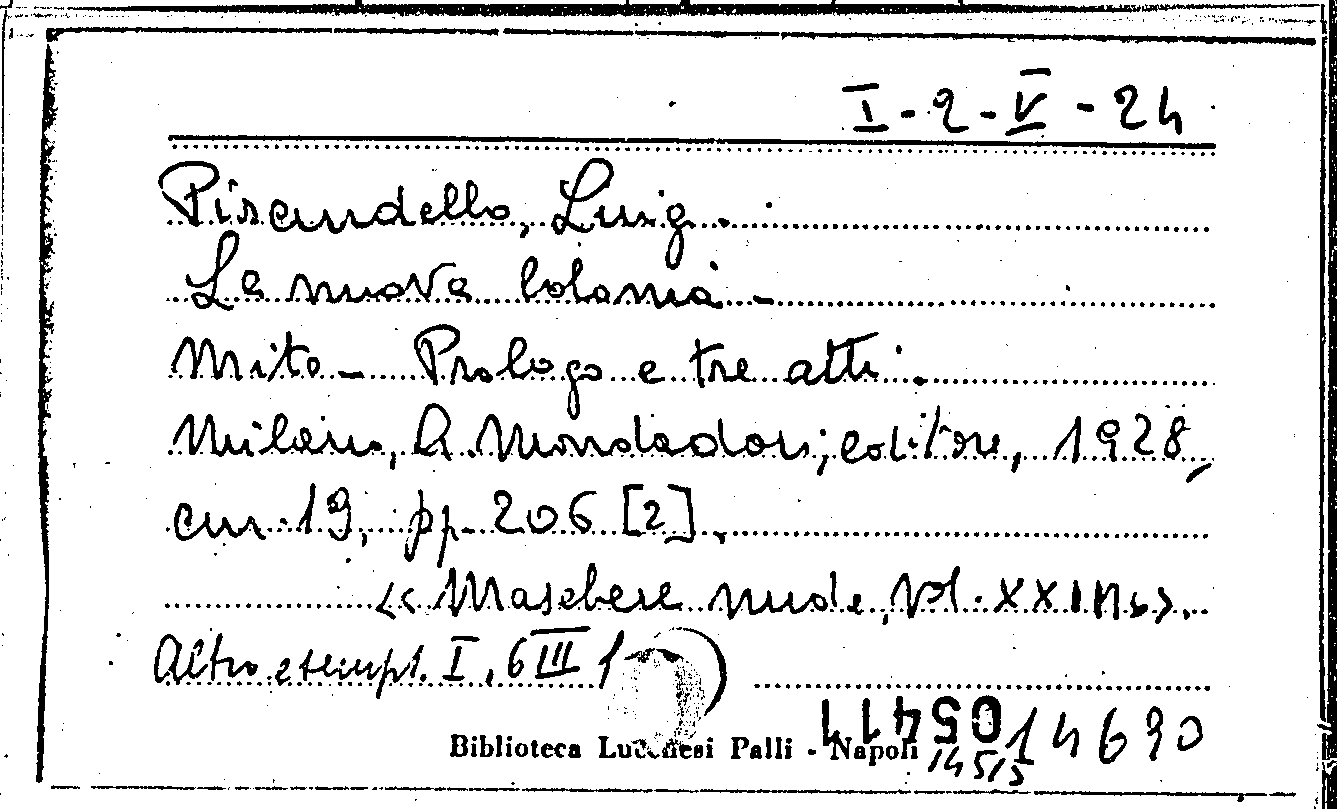 I-2-V-24
Pirandello, Luigi.
La nuova colonia -
Mito - Prologo e tre atti.
Milano, A. Mondadori, editore, 1928,
cm. 19, pp. 206 [2].
<< Maschere nude, vol.
Altro esempl. I, 6 III
14630
Biblioteca Lucchesi Palli - Napoli